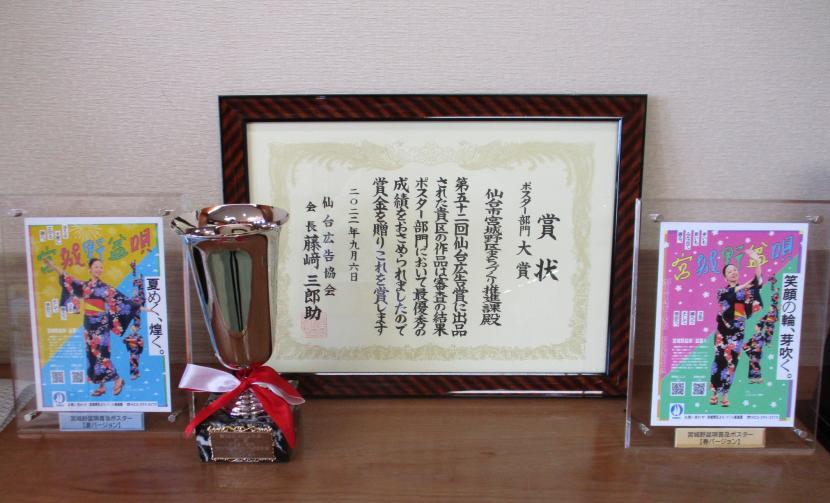 賞状
ポスター部門 大賞
仙台市宮城野区まちづくり推進課殿
第五十二回仙台広告賞に出品
された貴区の作品は審査の結果
ポスター部門において最優秀の
成績をおさめられましたので
賞金を贈りこれを賞します
二〇二二年九月六日
仙台広告協会
会長 藤﨑三郎助
宮城野盆唄
夏めく、煌く。
宮城野盆唄普及ポスター
【夏バージョン】
宮城野盆唄
笑顔の輪、芽吹く。
宮城野盆唄普及ポスター
【春バージョン】